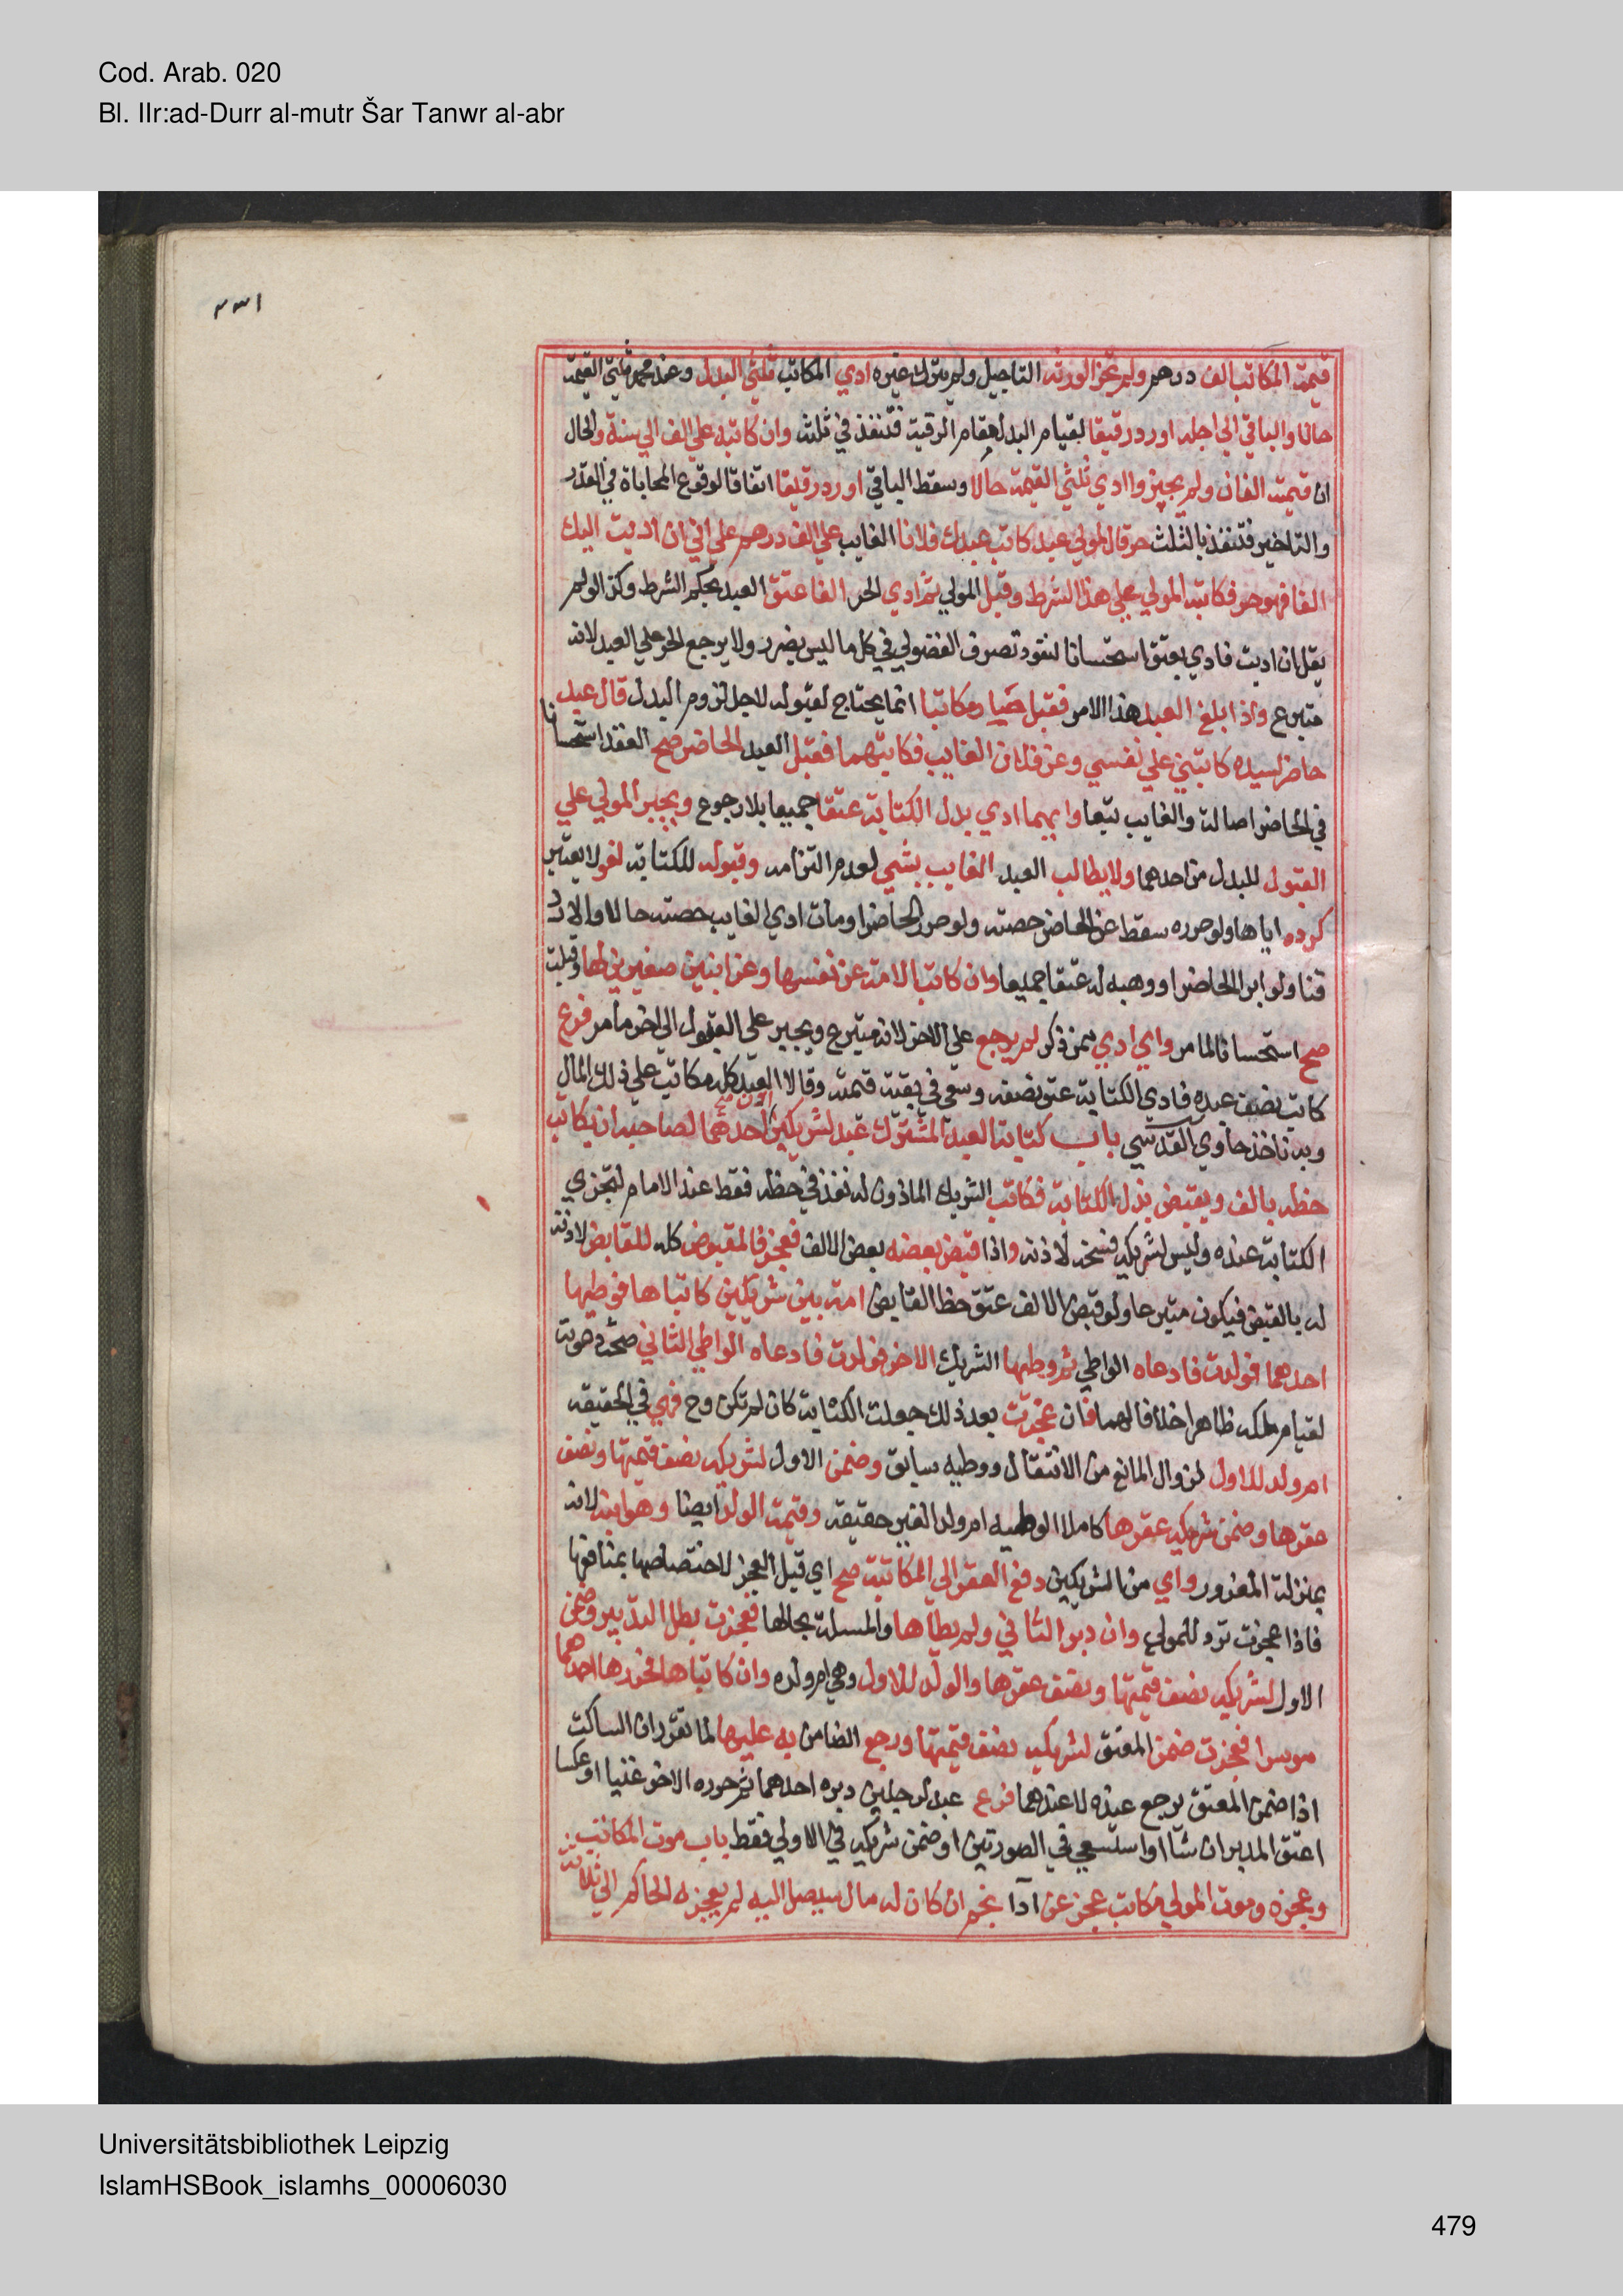 Cod. Arab. 020
Bl. IIr:ad-Durr al-mutr Šar Tanwr al-abr
٢٣١
قيمة المكاتب الف درهم ولم تجز الورثة التاجيل ولم يترك غيره ادي المكاتب ثلثي البدل وعند محمد ثلثي القيمة
حالا والباقي الي اجله او رد رقيقا لقيام البدل مقام الرقبة فتنفذ في ثلثه وان كاتبه علي الف الي سنة والحال
ان قيمته الفان ولم يجيزوا ادي ثلثي القيمة حالا وسقط الباقي او رد رقيقا اتفاقا لوقوع المحاباة في القدر
والتاخير فتنفذ بالثلث حر قال لمولي عبد كاتب عبدك فلانا الغايب علي الف درهم علي اني ان اديت اليك
الفا فهو حر فكاتبه المولي علي هذا الشرط وقبل المولي ثم ادي الحر الفا عتق العبد بحكم الشرط وكذا لو لم
يقل ان اديت فادي يعتق استحسانا لنفوذ تصرف الفضولي في كل ما ليس بضرر ولا يرجع الحر علي العبد لانه
متبرع واذا بلغ العبد هذا الامر فقبل صار مكاتبا انما يحتاج لقبوله لاجل لزوم البدل قال عبد
حاضر لسيده كاتبني علي نفسي وعن فلان الغايب فكاتبهما فقبل العبد الحاضر صح العقد استحسانا
في الحاضر اصالة والغايب تبعا وايهما ادي بدل الكتابة عتقا جميعا بلا رجوع ويجبر المولي علي
القبول للبدل من احدهما ولا يطالب العبد الغايب بشي لعدم التزامه وقبوله للكتابة لغو لا يعتبر
كرده اياها ولو حرره سقط عن الحاضر حصته ولو حرر الحاضر او مات ادي الغايب حصته حالا والا رد
قنا ولو ابرا الحاضر او وهبه له عتقا جميعا وان كاتب الامة عن نفسها وعن ابنين صغيرين لها وقبلت
صح استحسانا لما مر واي ادي ممن ذكر لم يرجع علي الاخر لانه متبرع ويجبر علي القبول الي اخر ما مر فرع
كاتب نصف عبده فادي الكتابة عتق نصفه وسعي في بقية قيمته وقالا العبد كله مكاتب علي ذلك المال
وبه ناخذ حاوي القدسي باب كتابة العبد المشترك عبد لشريكين اذن احدهما لصاحبه ان يكاتب
حظه بالف ويقبض بدل الكتابة فكاتب الشريك الماذون له نفذ في حظه فقط عند الامام لتجزي
الكتابة عنده وليس لشريكه فسخه لاذنه واذا قبض بعضه بعض الالف فعجز فالمقبوض كله للقابض لاذنه
له بالقبض فيكون متبرعا ولو قبض الالف عتق حظ القابض امة بين شريكين كاتباها فوطيها
احدهما فولدت فادعاه الواطي ثم وطيها الشريك الاخر فولدت فادعاه الواطي الثاني صحت دعوته
لقيام ملكه ظاهرا خلافا لهما فان عجزت بعد ذلك جعلت الكتابة كان لم تكن وح فهي في الحقيقة
ام ولد للاول لزوال المانع من الانتقال ووطيه سابق وضمن الاول لشريكه نصف قيمتها ونصف
عقرها وضمن شريكه عقرها كاملا لوطيه ام ولد الغير حقيقة وقيمة الولد ايضا وهو ابنه لانه
بمنزلة المغرور واي من الشريكين دفع العقر الي المكاتبة صح اي قبل العجز لاختصاصها بمنافعها
فاذا عجزت ترد للمولي وان دبر الثاني ولم يطاها والمسلة بحالها فعجزت بطل التدبير وضمن
الاول لشريكه نصف قيمتها ونصف عقرها والولد للاول وهي ام ولده وان كاتباها فحررها احدهما
موسرا فعجزت ضمن المعتق لشريكه نصف قيمتها ورجع الضامن به عليها لما تقرر ان الساكت
اذا ضمن المعتق يرجع عنده لا عندهما فرع عبد لرجلين دبره احدهما ثم حرره الاخر غنيا او عكسا
اعتق المدبر ان شا او استسعي في الصورتين او ضمن شريكه في الاولي فقط باب موت المكاتب
وعجزه وموت المولي مكاتب عجز عن ادا نجم ان كان له مال سيصل اليه لم يعجزه الحاكم الي ثلاثة
Universitätsbibliothek Leipzig
IslamHSBook_islamhs_00006030
479